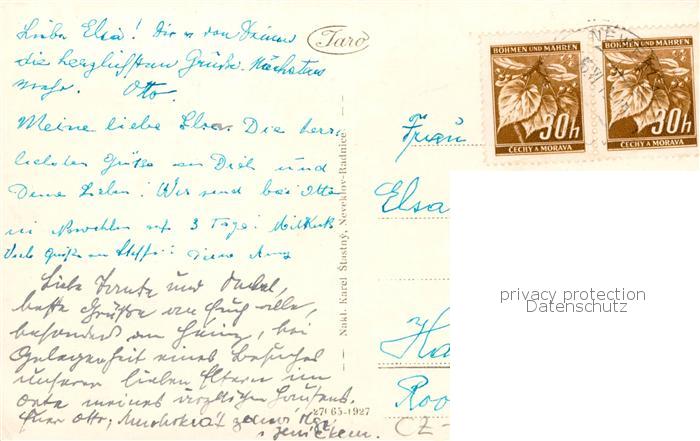 Liebe Elsa! Dir u von Deinen
die herzlichsten Grüße. Nächstens
mehr. Otto.
Meine liebe Elsa. Die herz-
lichsten Grüße an Dich und
Deine Lieben! Wir sind bei Otto
in auf 3 Tage!
Viele Grüße an Steffi! Deine
Liebe Tante und Onkel,
beste Grüße an Euch alle,
besonders an Heinz, bei
Gelegenheit eines Besuches
unserer lieben Eltern im
Orte meines
Euer Otto,
Taro
Nakl. Karel Šťastný, Neveklov-Radnice
27065-1927
BÖHMEN UND MÄHREN
30h
ČECHY A MORAVA
BÖHMEN UND MÄHREN
30h
ČECHY A MORAVA
NEW
Frau
Elsa
Ha
Roo
CZ-
privacy protection
Datenschutz